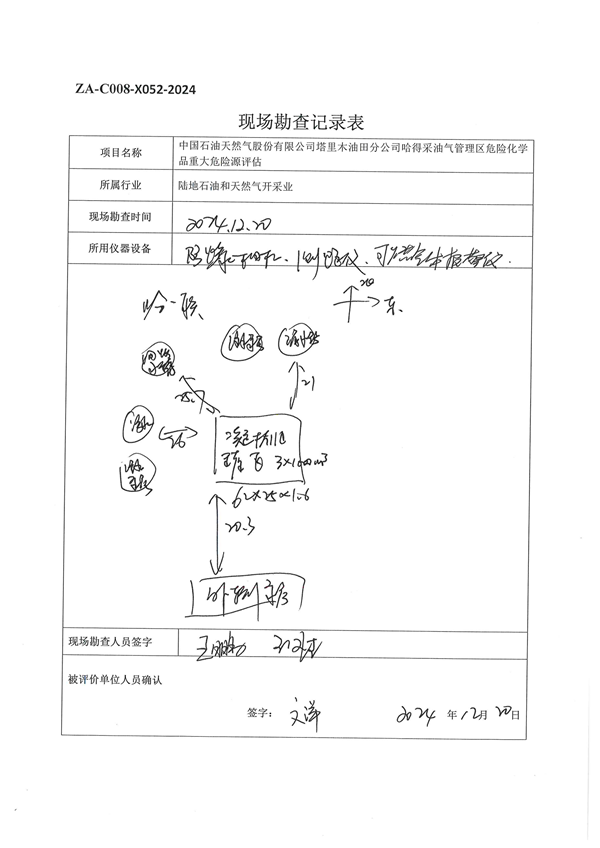 ZA-C008-X052-2024
现场勘查记录表
项目名称
中国石油天然气股份有限公司塔里木油田分公司哈得采油气管理区危险化学
品重大危险源评估
所属行业
陆地石油和天然气开采业
现场勘查时间
2024.12.20
所用仪器设备
防爆相机、测距仪、可燃气体检测仪.
哈一联
北
东
21
25.7
26
3×1000m³
62×25×1.6
20.3
现场勘查人员签字
被评价单位人员确认
签字: 文洋 2024 年 12月 20日